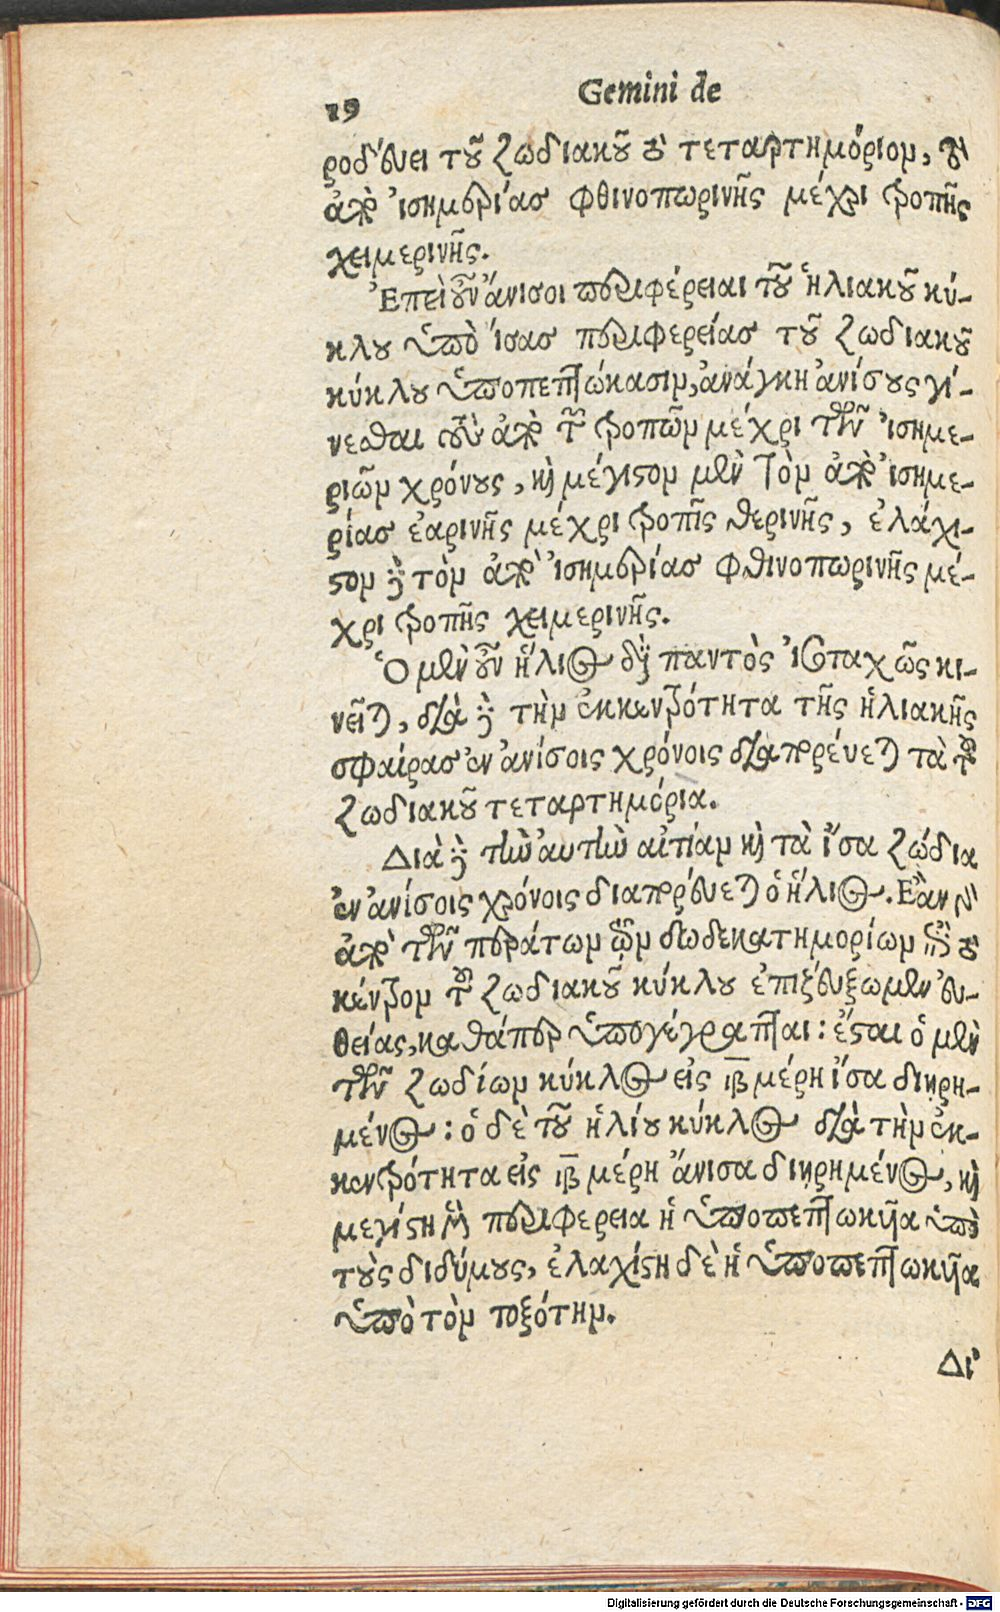 19
Gemini de
ροδεύει τοῦ ζωδιακοῦ τὸ τεταρτημόριον, τὸ
ἀπὸ ἰσημερίας φθινοπωρινῆς μέχρι τροπῆς
χειμερινῆς.
Ἐπεὶ οὖν ἄνισοι περιφέρειαι τοῦ ἡλιακοῦ κύ-
κλου ὑπὸ ἴσας περιφερείας τοῦ ζωδιακοῦ
κύκλου ὑποπεπτώκασιν, ἀνάγκη ἀνίσους γί-
νεσθαι τοὺς ἀπὸ τῶν τροπῶν μέχρι τῶν ἰσημε-
ριῶν χρόνους, καὶ μέγιστον μὲν τὸν ἀπὸ ἰσημε-
ρίας ἐαρινῆς μέχρι τροπῆς θερινῆς, ἐλάχι-
στον δὲ τὸν ἀπὸ ἰσημερίας φθινοπωρινῆς μέ-
χρι τροπῆς χειμερινῆς.
Ὁ μὲν οὖν ἥλιος διὰ παντὸς ἰσοταχῶς κι-
νεῖται, διὰ δὲ τὴν ἐκκεντρότητα τῆς ἡλιακῆς
σφαίρας ἐν ἀνίσοις χρόνοις διαπορεύεται τὰ τοῦ
ζωδιακοῦ τεταρτημόρια.
Διὰ δὲ τὴν αὐτὴν αἰτίαν καὶ τὰ ἴσα ζώδια
ἐν ἀνίσοις χρόνοις διαπορεύεται ὁ ἥλιος. Ἐὰν γὰρ
ἀπὸ τῶν περάτων τῶν δωδεκατημορίων ἐπὶ τὸ
κέντρον τοῦ ζωδιακοῦ κύκλου ἐπιζεύξωμεν εὐ-
θείας, καθάπερ ὑπογέγραπται: ἔσται ὁ μὲν
τῶν ζωδίων κύκλος εἰς ιβ μέρη ἴσα διῃρη-
μένος: ὁ δὲ τοῦ ἡλίου κύκλος διὰ τὴν ἐκ-
κεντρότητα εἰς ιβ μέρη ἄνισα διῃρημένος, καὶ
μεγίστη μὲν περιφερεια ἡ ὑποπεπτωκυῖα ὑπὸ
τοὺς διδύμους, ἐλαχίστη δὲ ἡ ὑποπεπτωκυῖα
ὑπὸ τὸν τοξότην.
Δι'
Digitalisierung gefördert durch die Deutsche Forschungsgemeinschaft - DFG